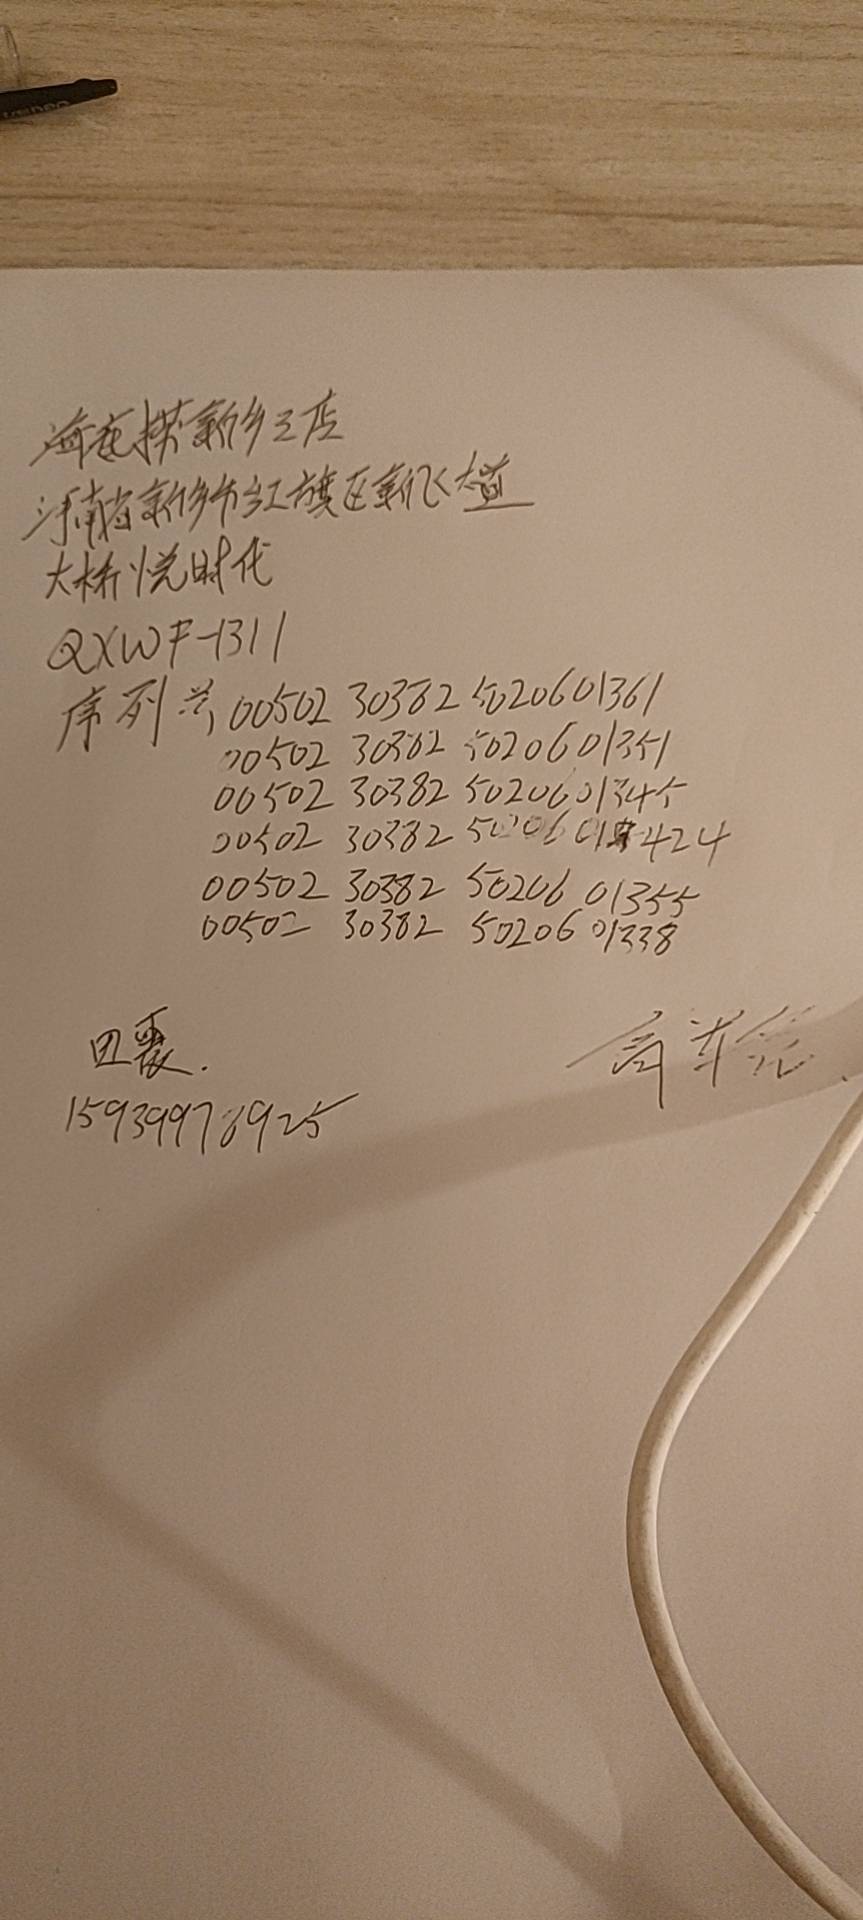 海底捞新乡三店
河南省新乡市红旗区新飞大道
大桥悦时代
QXWF-1311
序列号 00502 30382 50206 01361
00502 30382 50206 01351
00502 30382 50206 01345
00502 30382 50206 01424
00502 30382 50206 01355
00502 30382 50206 01338
田震.
15939978925